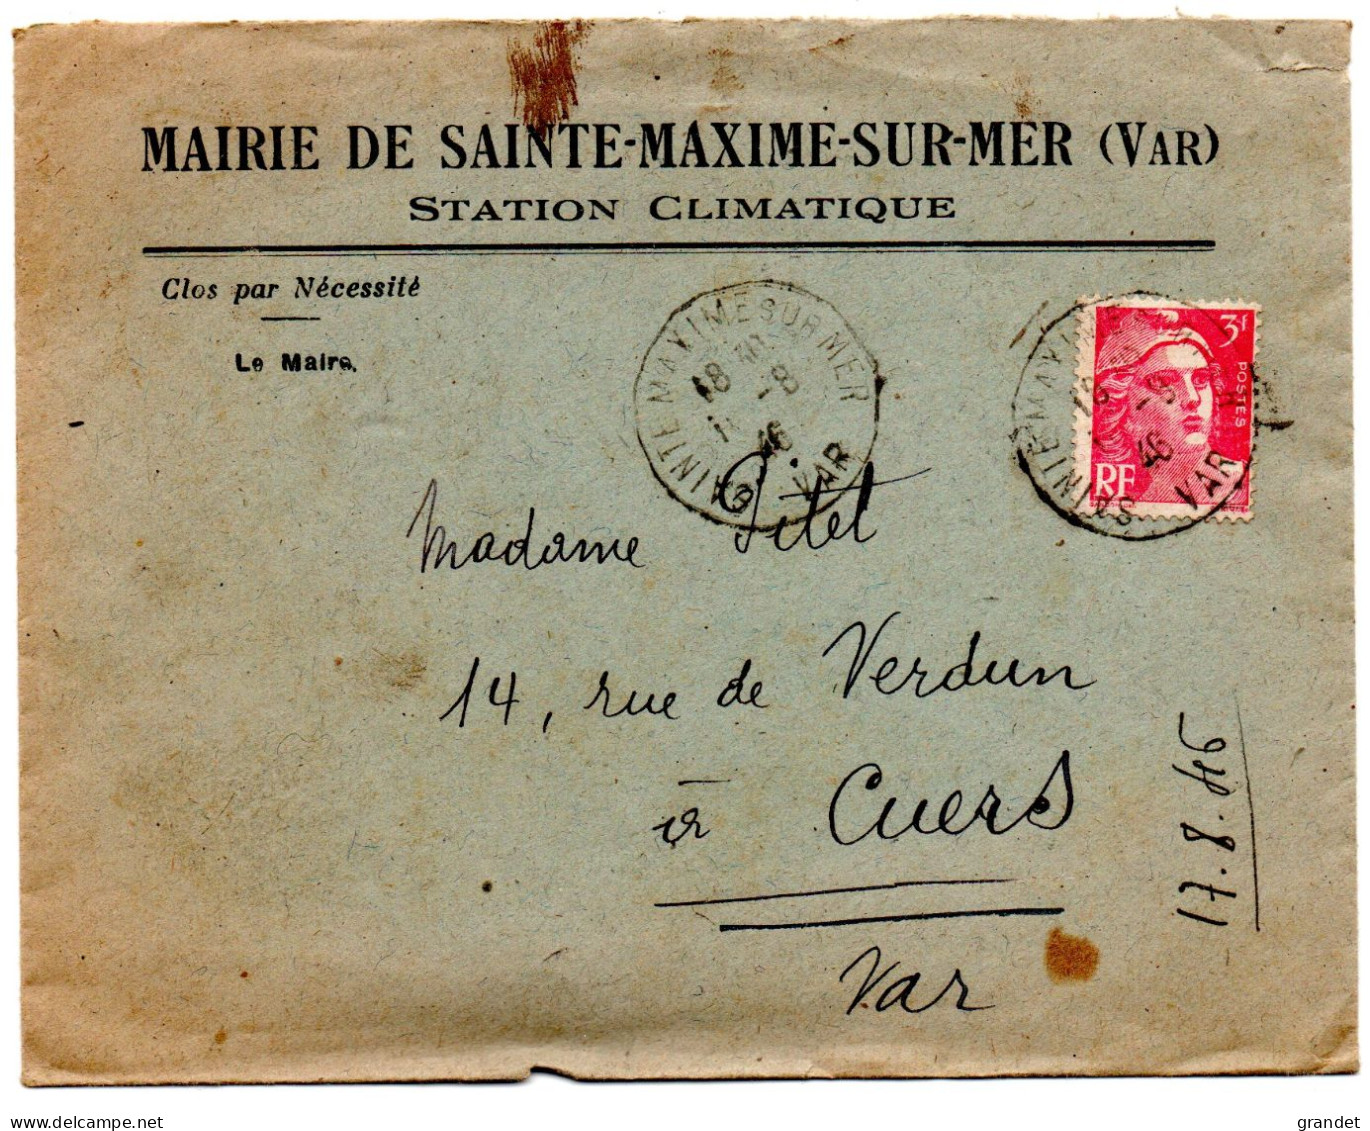 MAIRIE DE SAINTE-MAXIME-SUR-MER (VAR)
STATION CLIMATIQUE
Clos par Nécessité
Le Maire,
SAINTE MAXIME SUR MER
18 -8
46
VAR
3F
POSTES
RF
SAINTE MAXIME
18 -8
46
VAR
Madame Pitet
14, rue de Verdun
à Cuers
Var
17.8.46
delcampe.net
grandet